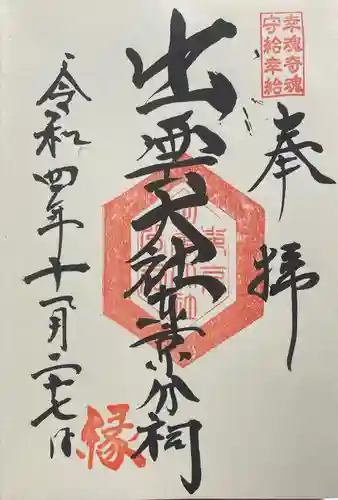 幸魂奇魂
守給幸給
奉拝
出雲大社東京分祠
令和四年十一月二十七日
縁